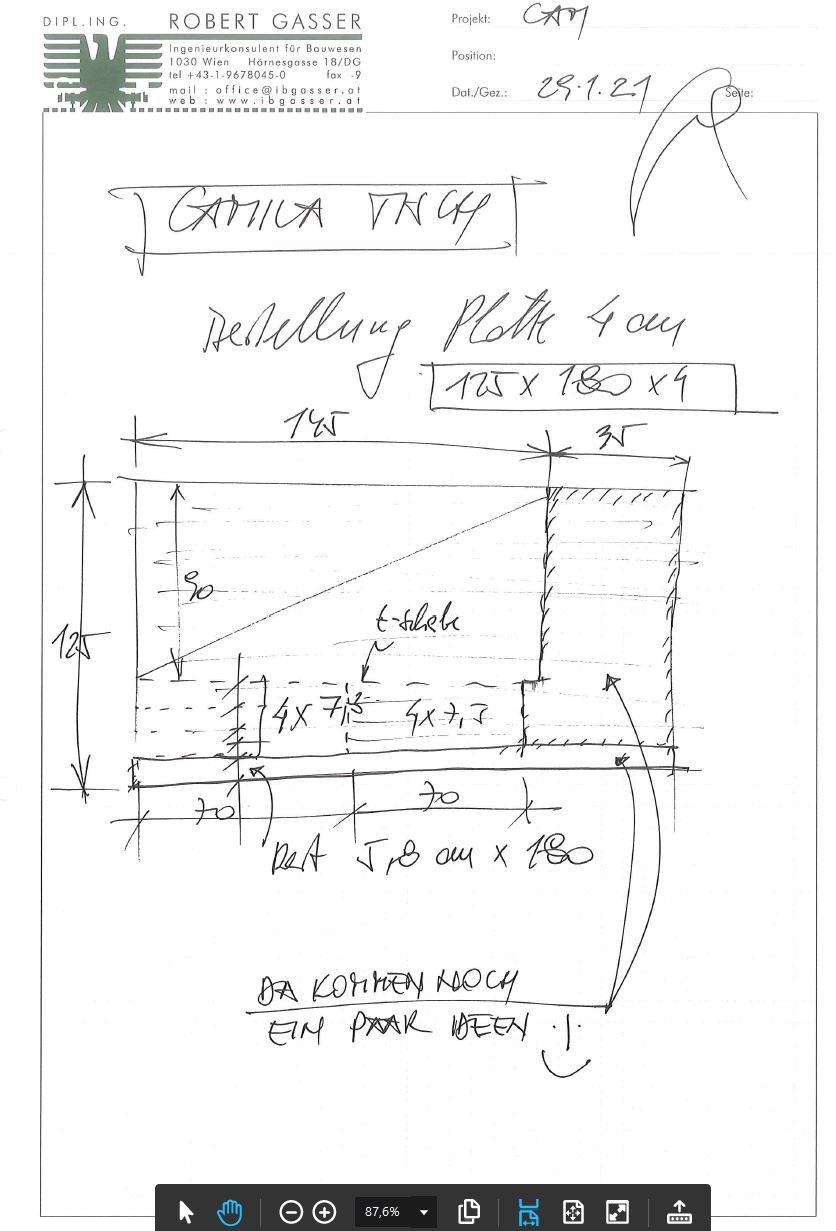 DIPL.ING. ROBERT GASSER
Ingenieurkonsulent für Bauwesen
1030 Wien Hörnesgasse 18/DG
tel +43-1-9678045-0 fax -9
mail : office@ibgasser.at
web : www.ibgasser.at
Projekt: CAM
Position:
Dat./Gez.: 29.1.21
Seite:
CAMILLA TISCH
Bestellung Platte 4 cm
125 x 180 x 4
145
35
90
125
4x 7,3
4x7,3
70
70
Rest 5,8 cm x 180
DA KOMMEN NOCH
EIN PAAR IDEEN
87,6%